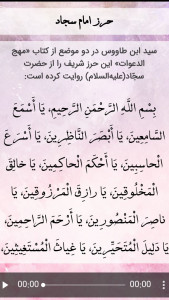 حرز امام سجاد
سید ابن طاووس در دو موضع از کتاب «مهج
الدعوات» این حرز شریف را از حضرت
سجّاد(علیه‌السلام) روایت کرده است:
بِسْمِ اللَّهِ الرَّحْمَنِ الرَّحِيمِ، يَا أَسْمَعَ
السَّامِعِينَ، يَا أَبْصَرَ النَّاظِرِينَ، يَا أَسْرَعَ
الْحَاسِبِينَ، يَا أَحْكَمَ الْحَاكِمِينَ، يَا خَالِقَ
الْمَخْلُوقِينَ، يَا رَازِقَ الْمَرْزُوقِينَ، يَا
نَاصِرَ الْمَنْصُورِينَ، يَا أَرْحَمَ الرَّاحِمِينَ،
يَا دَلِيلَ الْمُتَحَيِّرِينَ، يَا غِيَاثَ الْمُسْتَغِيثِينَ،
00:00 00:00